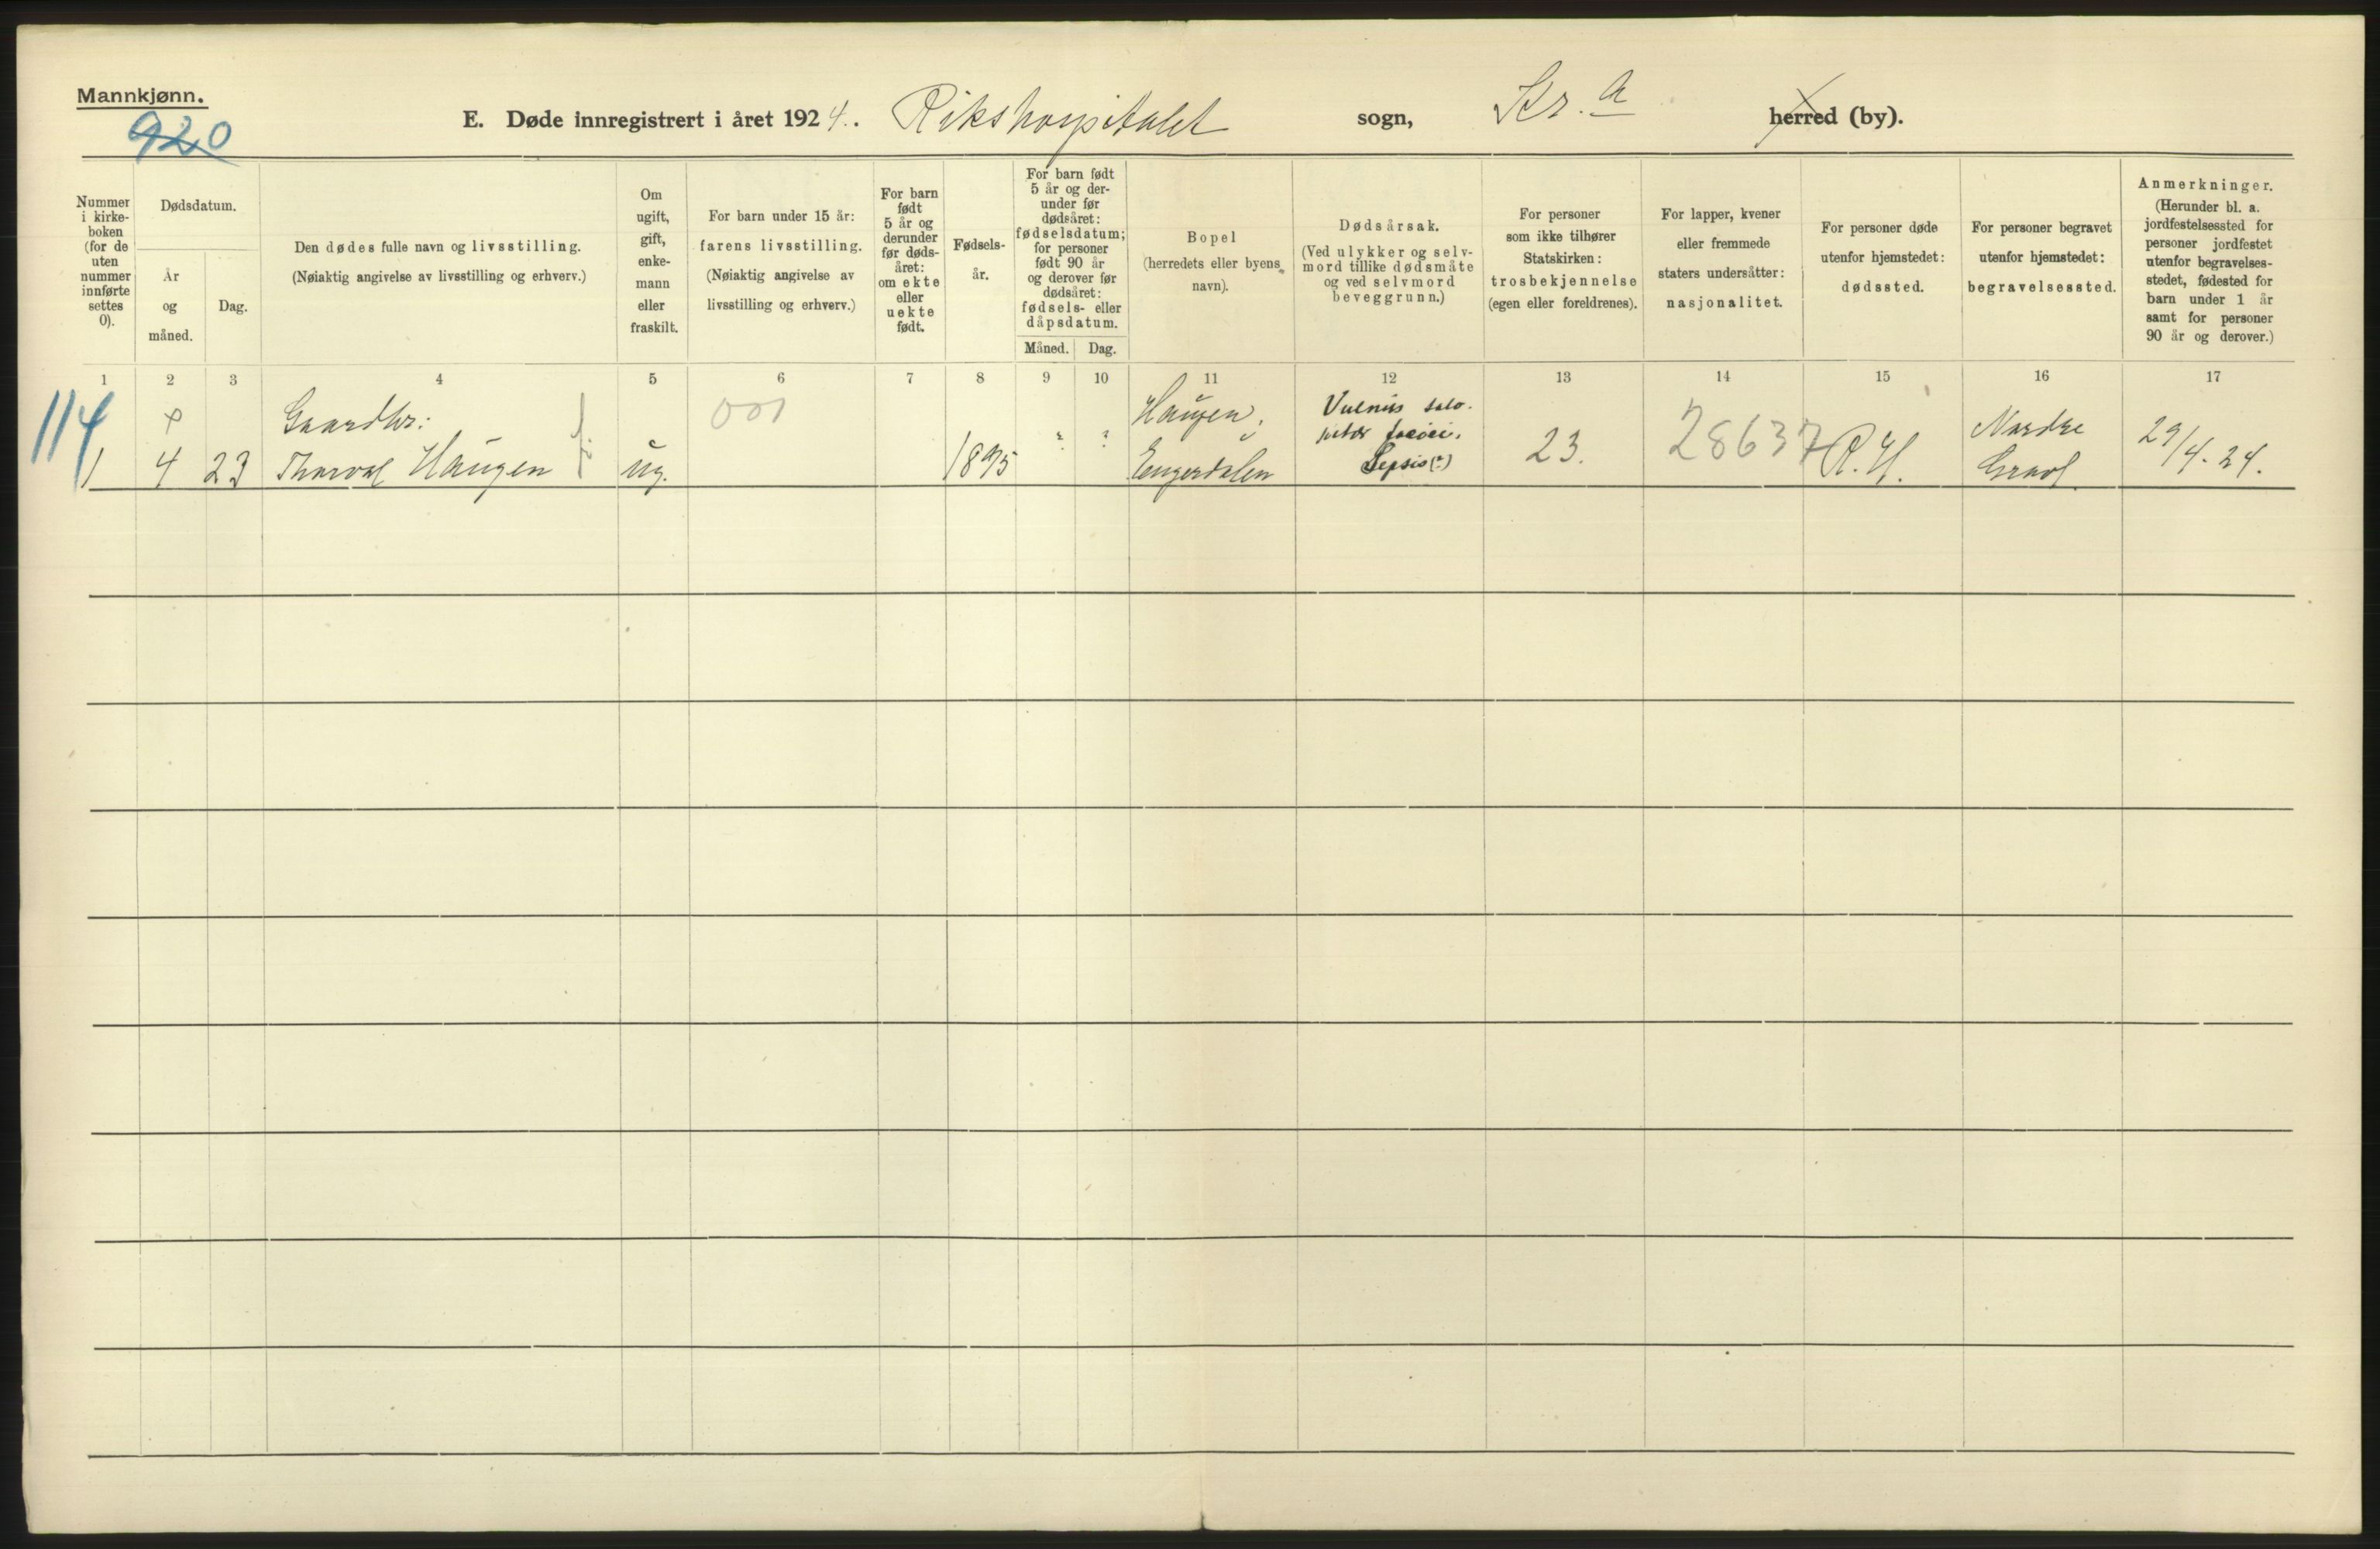 Mannkjønn.
920
E. Døde innregistrert i året 1924. Rikshospitalet sogn, Kr.a herred (by).
Nummer i kirke-boken (for de uten nummer innførte settes 0).
Dødsdatum.
År og måned.
Dag.
Den dødes fulle navn og livsstilling.
(Nøiaktig angivelse av livsstilling og erhverv.)
Om ugift, gift, enke-mann eller fraskilt.
For barn under 15 år:
farens livsstilling.
(Nøiaktig angivelse av livsstilling og erhverv.)
For barn født 5 år og derunder før døds-året: om ekte eller uekte født.
Fødsels-år.
For barn født 5 år og der-under før dødsåret: fødselsdatum; for personer født 90 år og derover før dødsåret: fødsels- eller dåpsdatum.
Måned.
Dag.
Bopel
(herredets eller byens navn).
Dødsårsak.
(Ved ulykker og selv-mord tillike dødsmåte og ved selvmord beveggrunn.)
For personer som ikke tilhører Statskirken: trosbekjennelse (egen eller foreldrenes).
For lapper, kvener eller fremmede staters undersåtter: nasjonalitet.
For personer døde utenfor hjemstedet: dødssted.
For personer begravet utenfor hjemstedet: begravelsessted.
Anmerkninger.
(Herunder bl. a. jordfestelsessted for personer jordfestet utenfor begravelses-stedet, fødested for barn under 1 år samt for personer 90 år og derover.)
1 2 3 4 5 6 7 8 9 10 11 12 13 14 15 16 17
114
Gaardbr:
001
Haugen,
Vulnus
Nordre
1 4 23 Thorval Haugen ug. 1895 ? ? Engerdalen Sepsis (?) 23. 28637 R.H. Gravl 29/4-24.